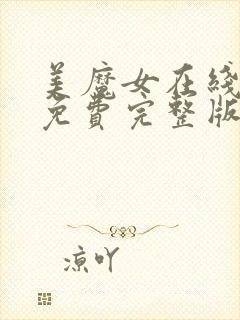 美魔女在线
免费完整版
凉吖